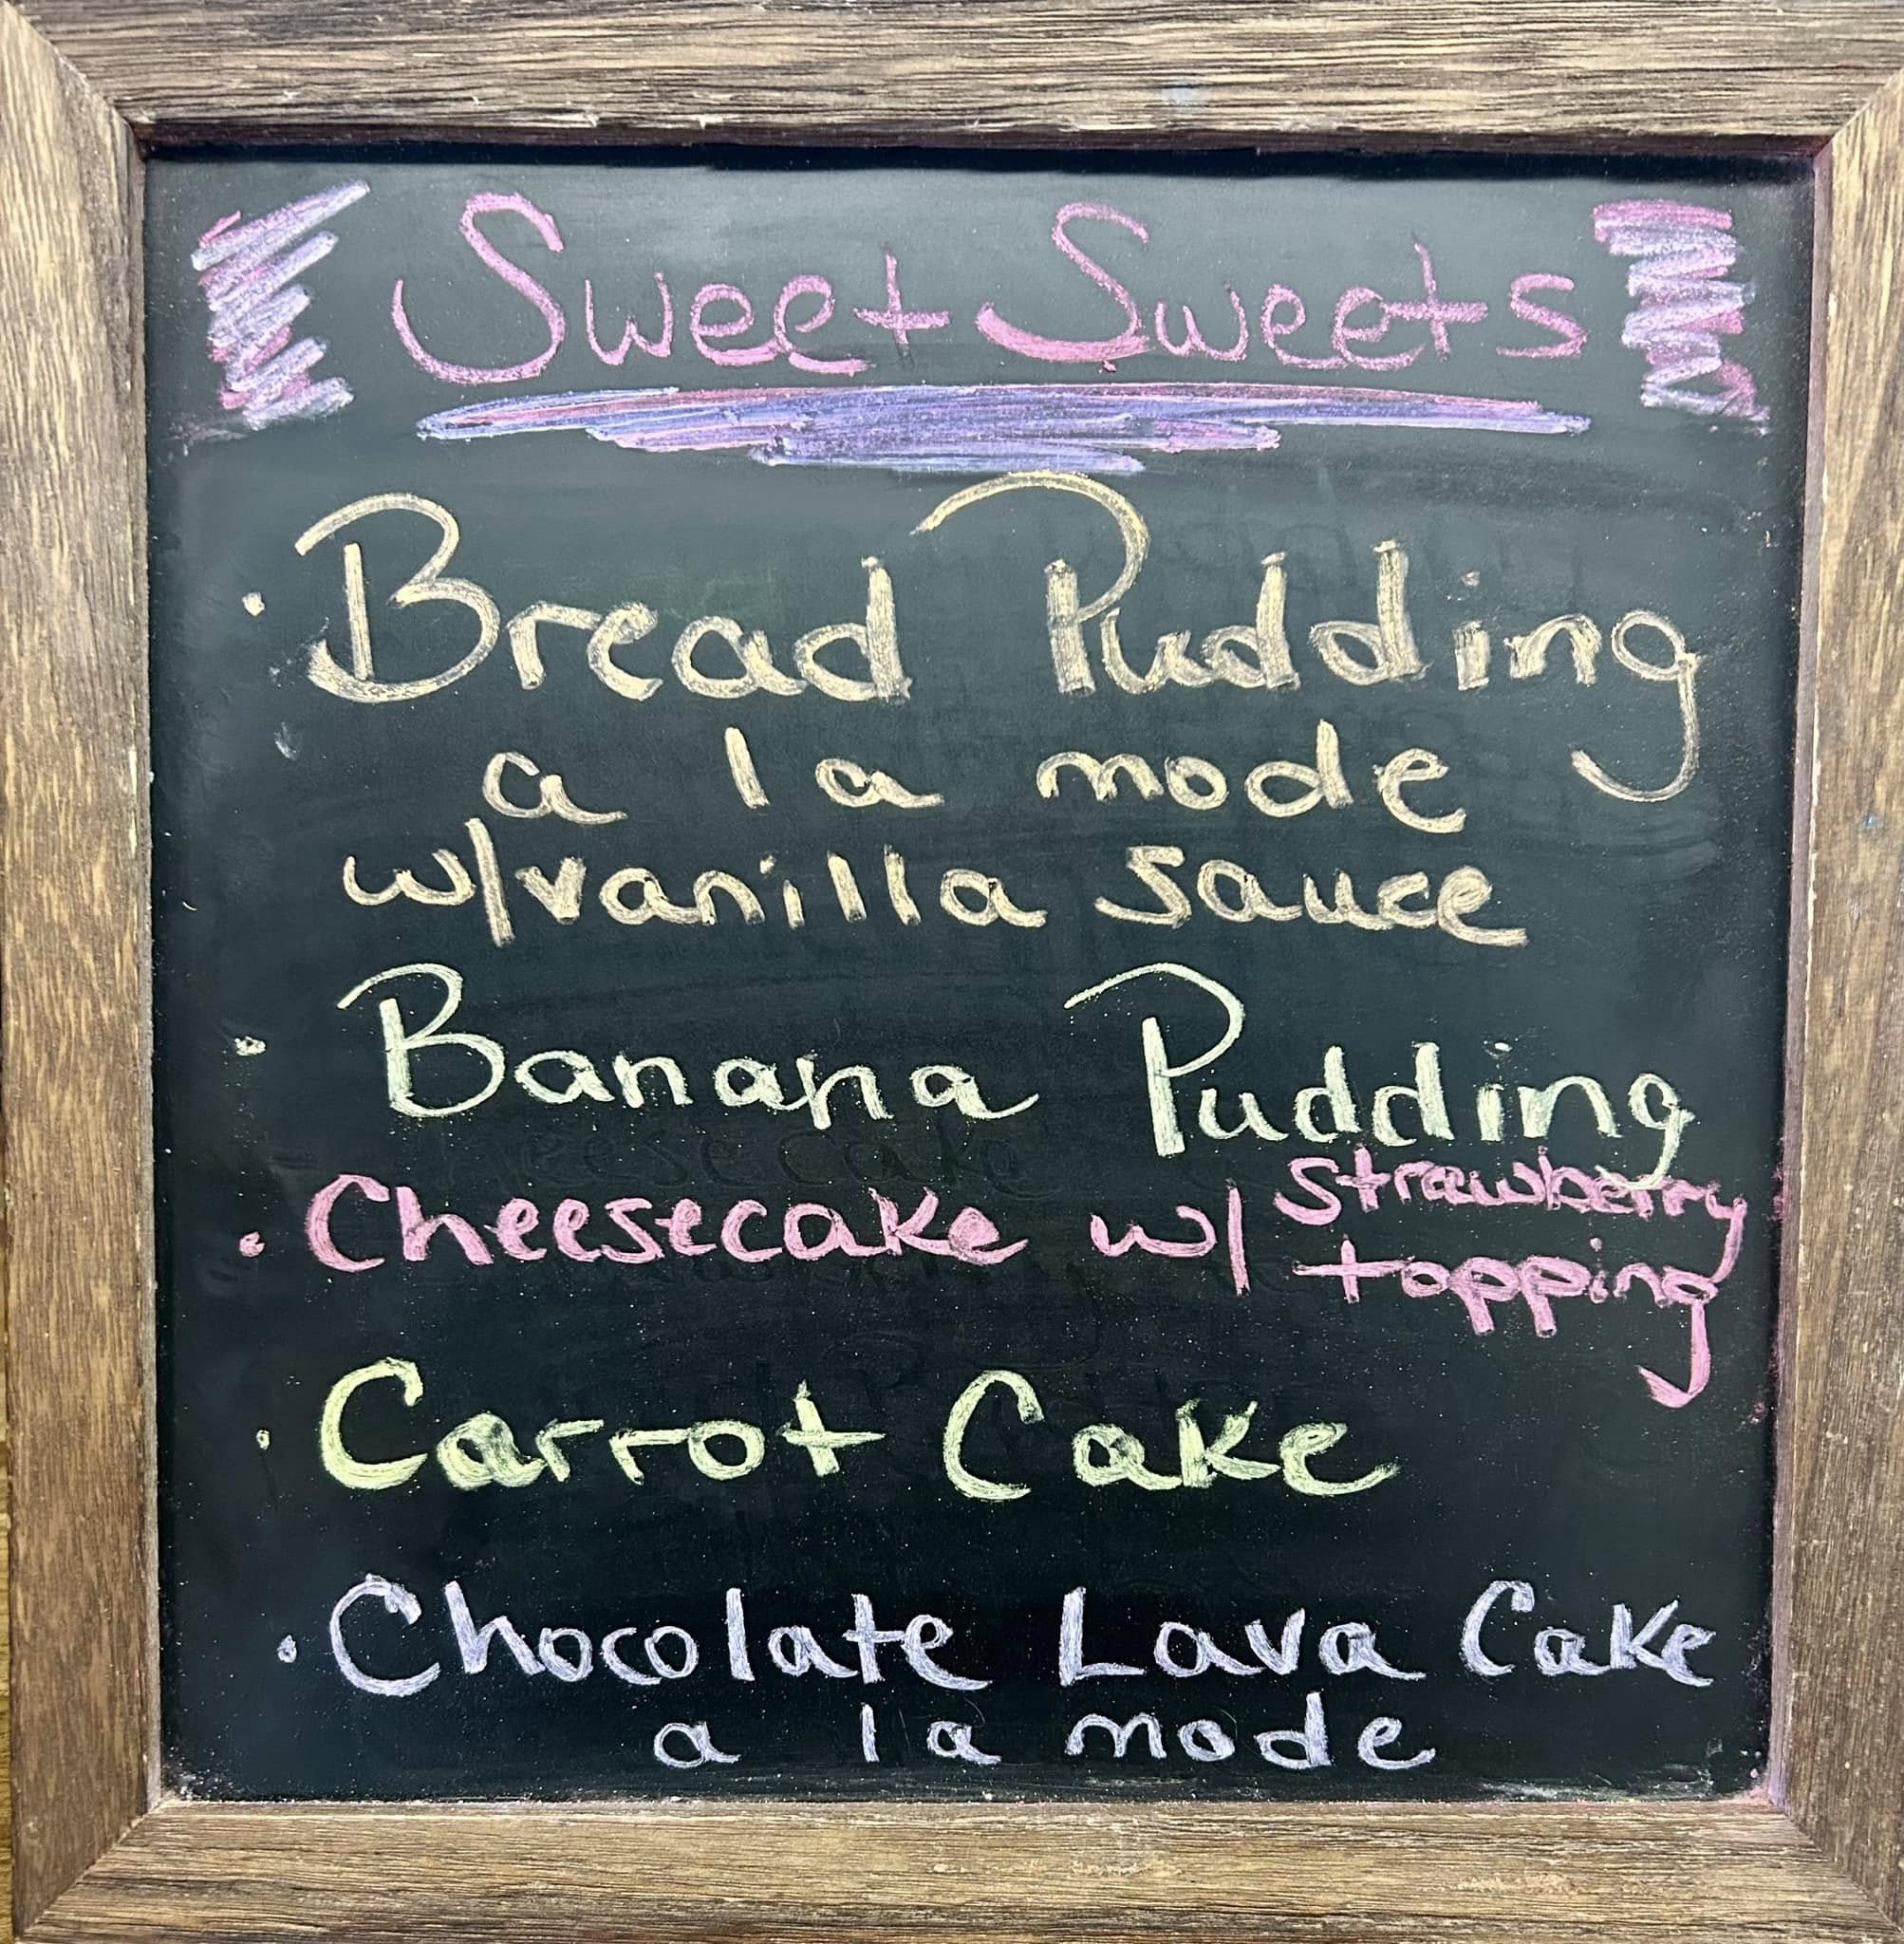 Sweet Sweets
· Bread Pudding
a la mode
w/vanilla sauce
· Banana Pudding
· Cheesecake w/ strawberry
topping
· Carrot Cake
· Chocolate Lava Cake
a la mode